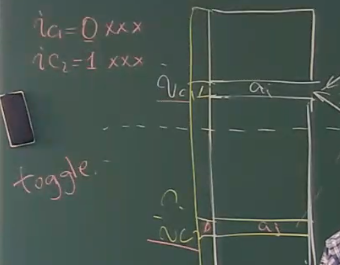 ic₁ = 0 xxx
ic₂ = 1 xxx
ic₁
1
aᵢ
toggle.
0
aⱼ